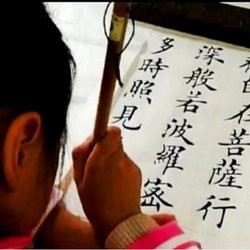 自在菩薩行
深般若波羅密
多時照見